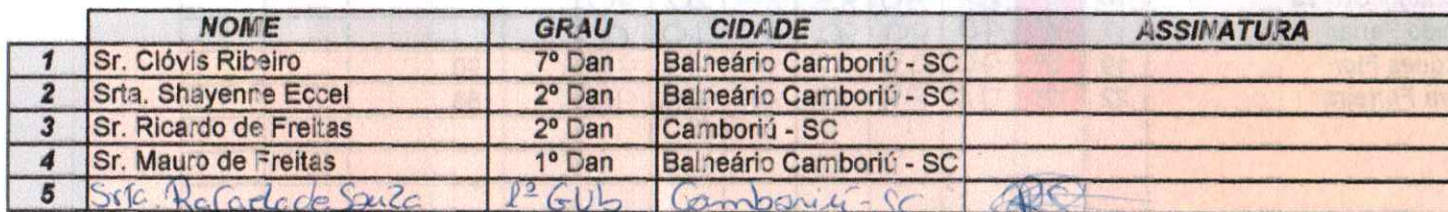 NOME GRAU CIDADE ASSINATURA
1 Sr. Clóvis Ribeiro 7º Dan Balneário Camboriú - SC
2 Srta. Shayenne Eccel 2º Dan Balneário Camboriú - SC
3 Sr. Ricardo de Freitas 2º Dan Camboriú - SC
4 Sr. Mauro de Freitas 1º Dan Balneário Camboriú - SC
5 Srta. Rafaela de Souza 1º GUb Camboriú - SC